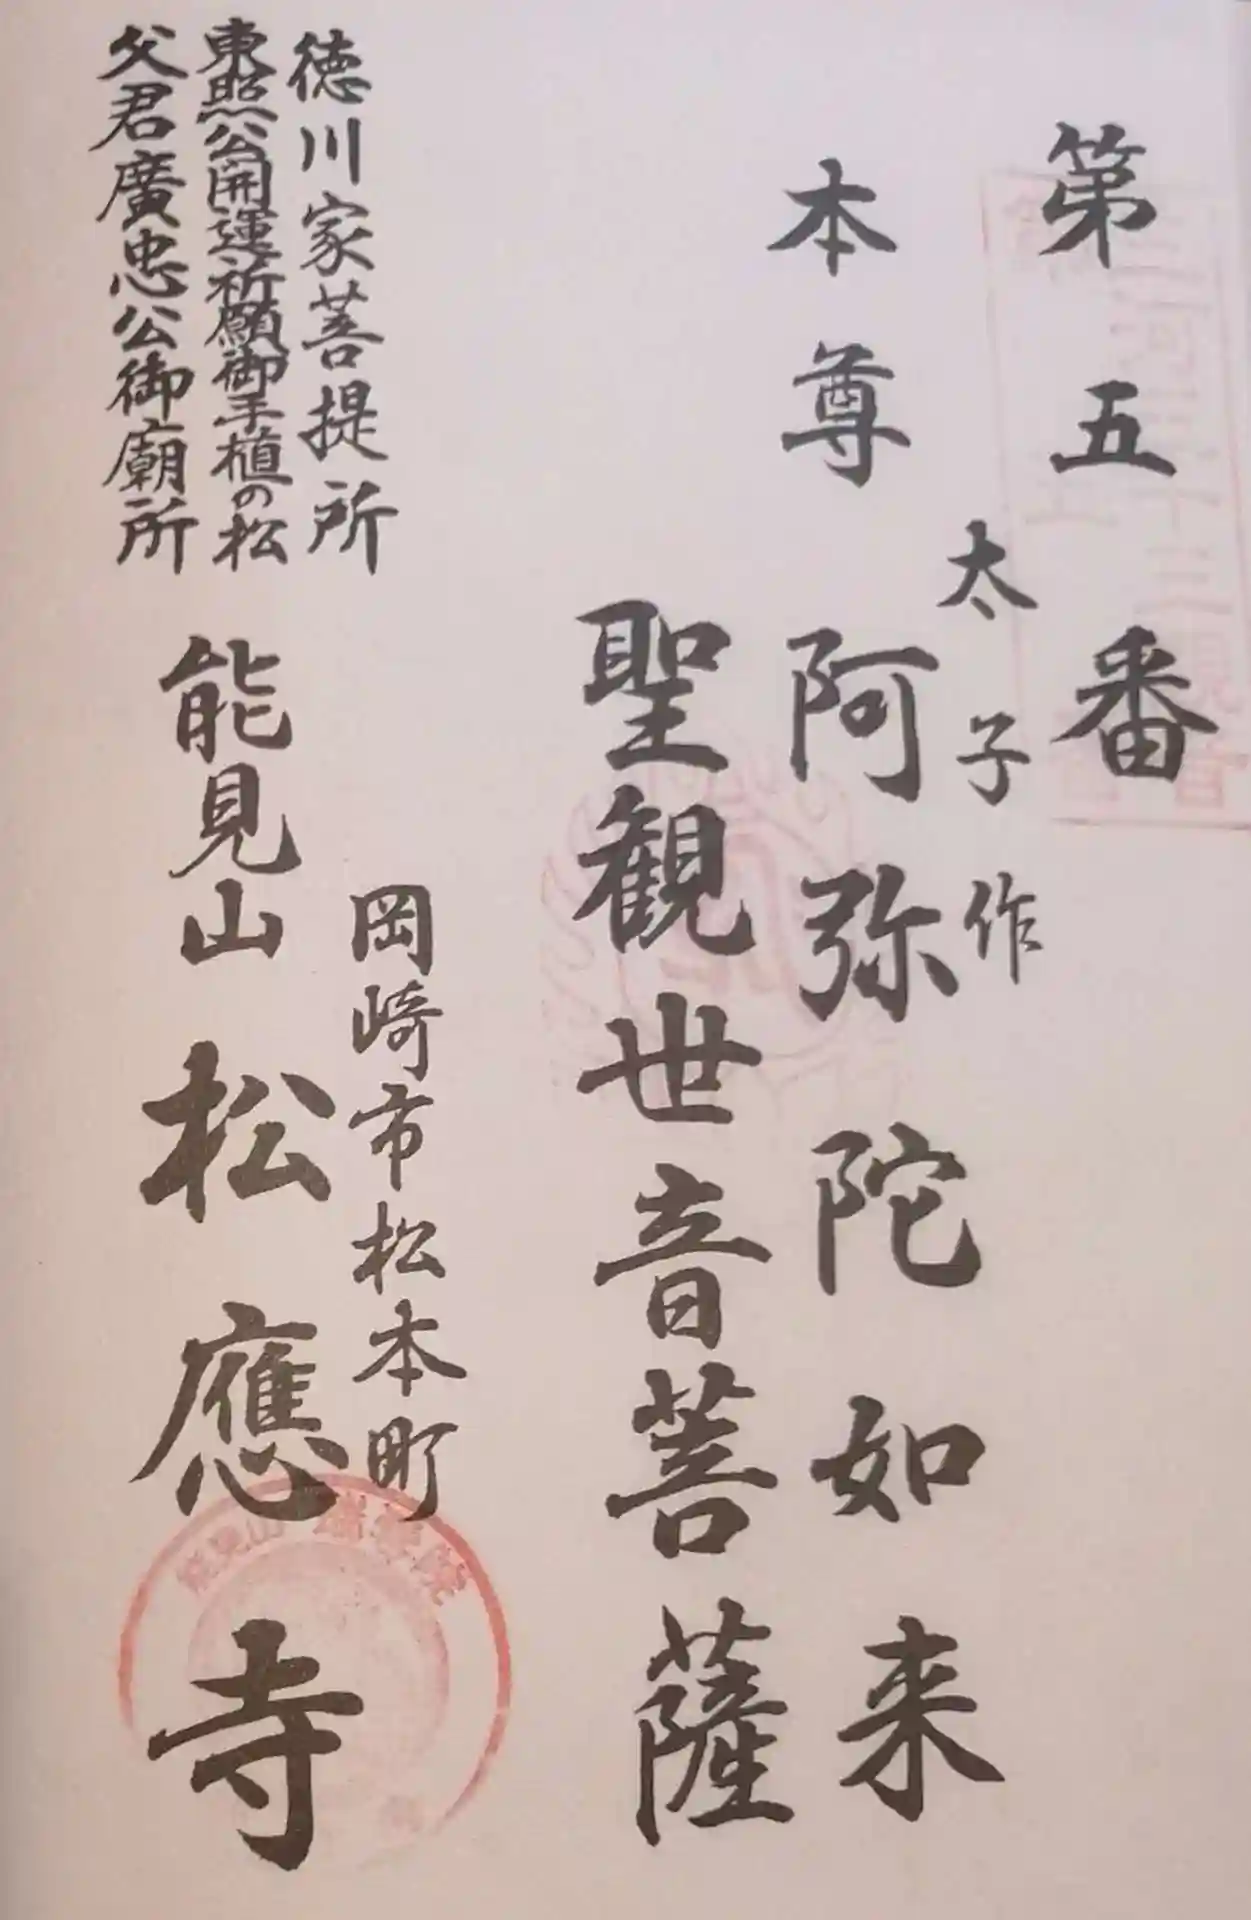 第五番
太子作
本尊 阿弥陀如来
聖観世音菩薩
岡崎市松本町
徳川家菩提所
東照公開運祈願御手植の松
父君廣忠公御廟所
能見山 松應寺
能見山 瑞雲院